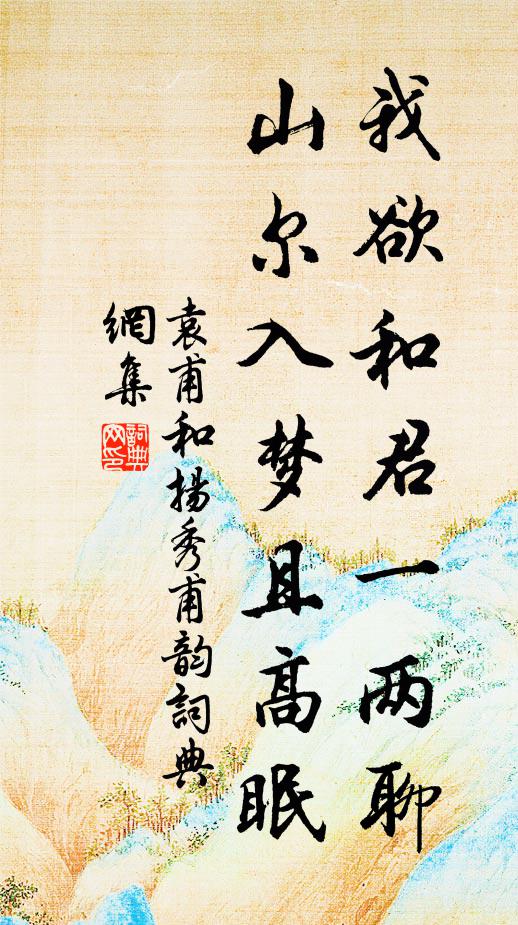 我欲和君一两聊
山尔入梦且高眠
袁甫和扬秀甫韵词典
網集
詞典
网印